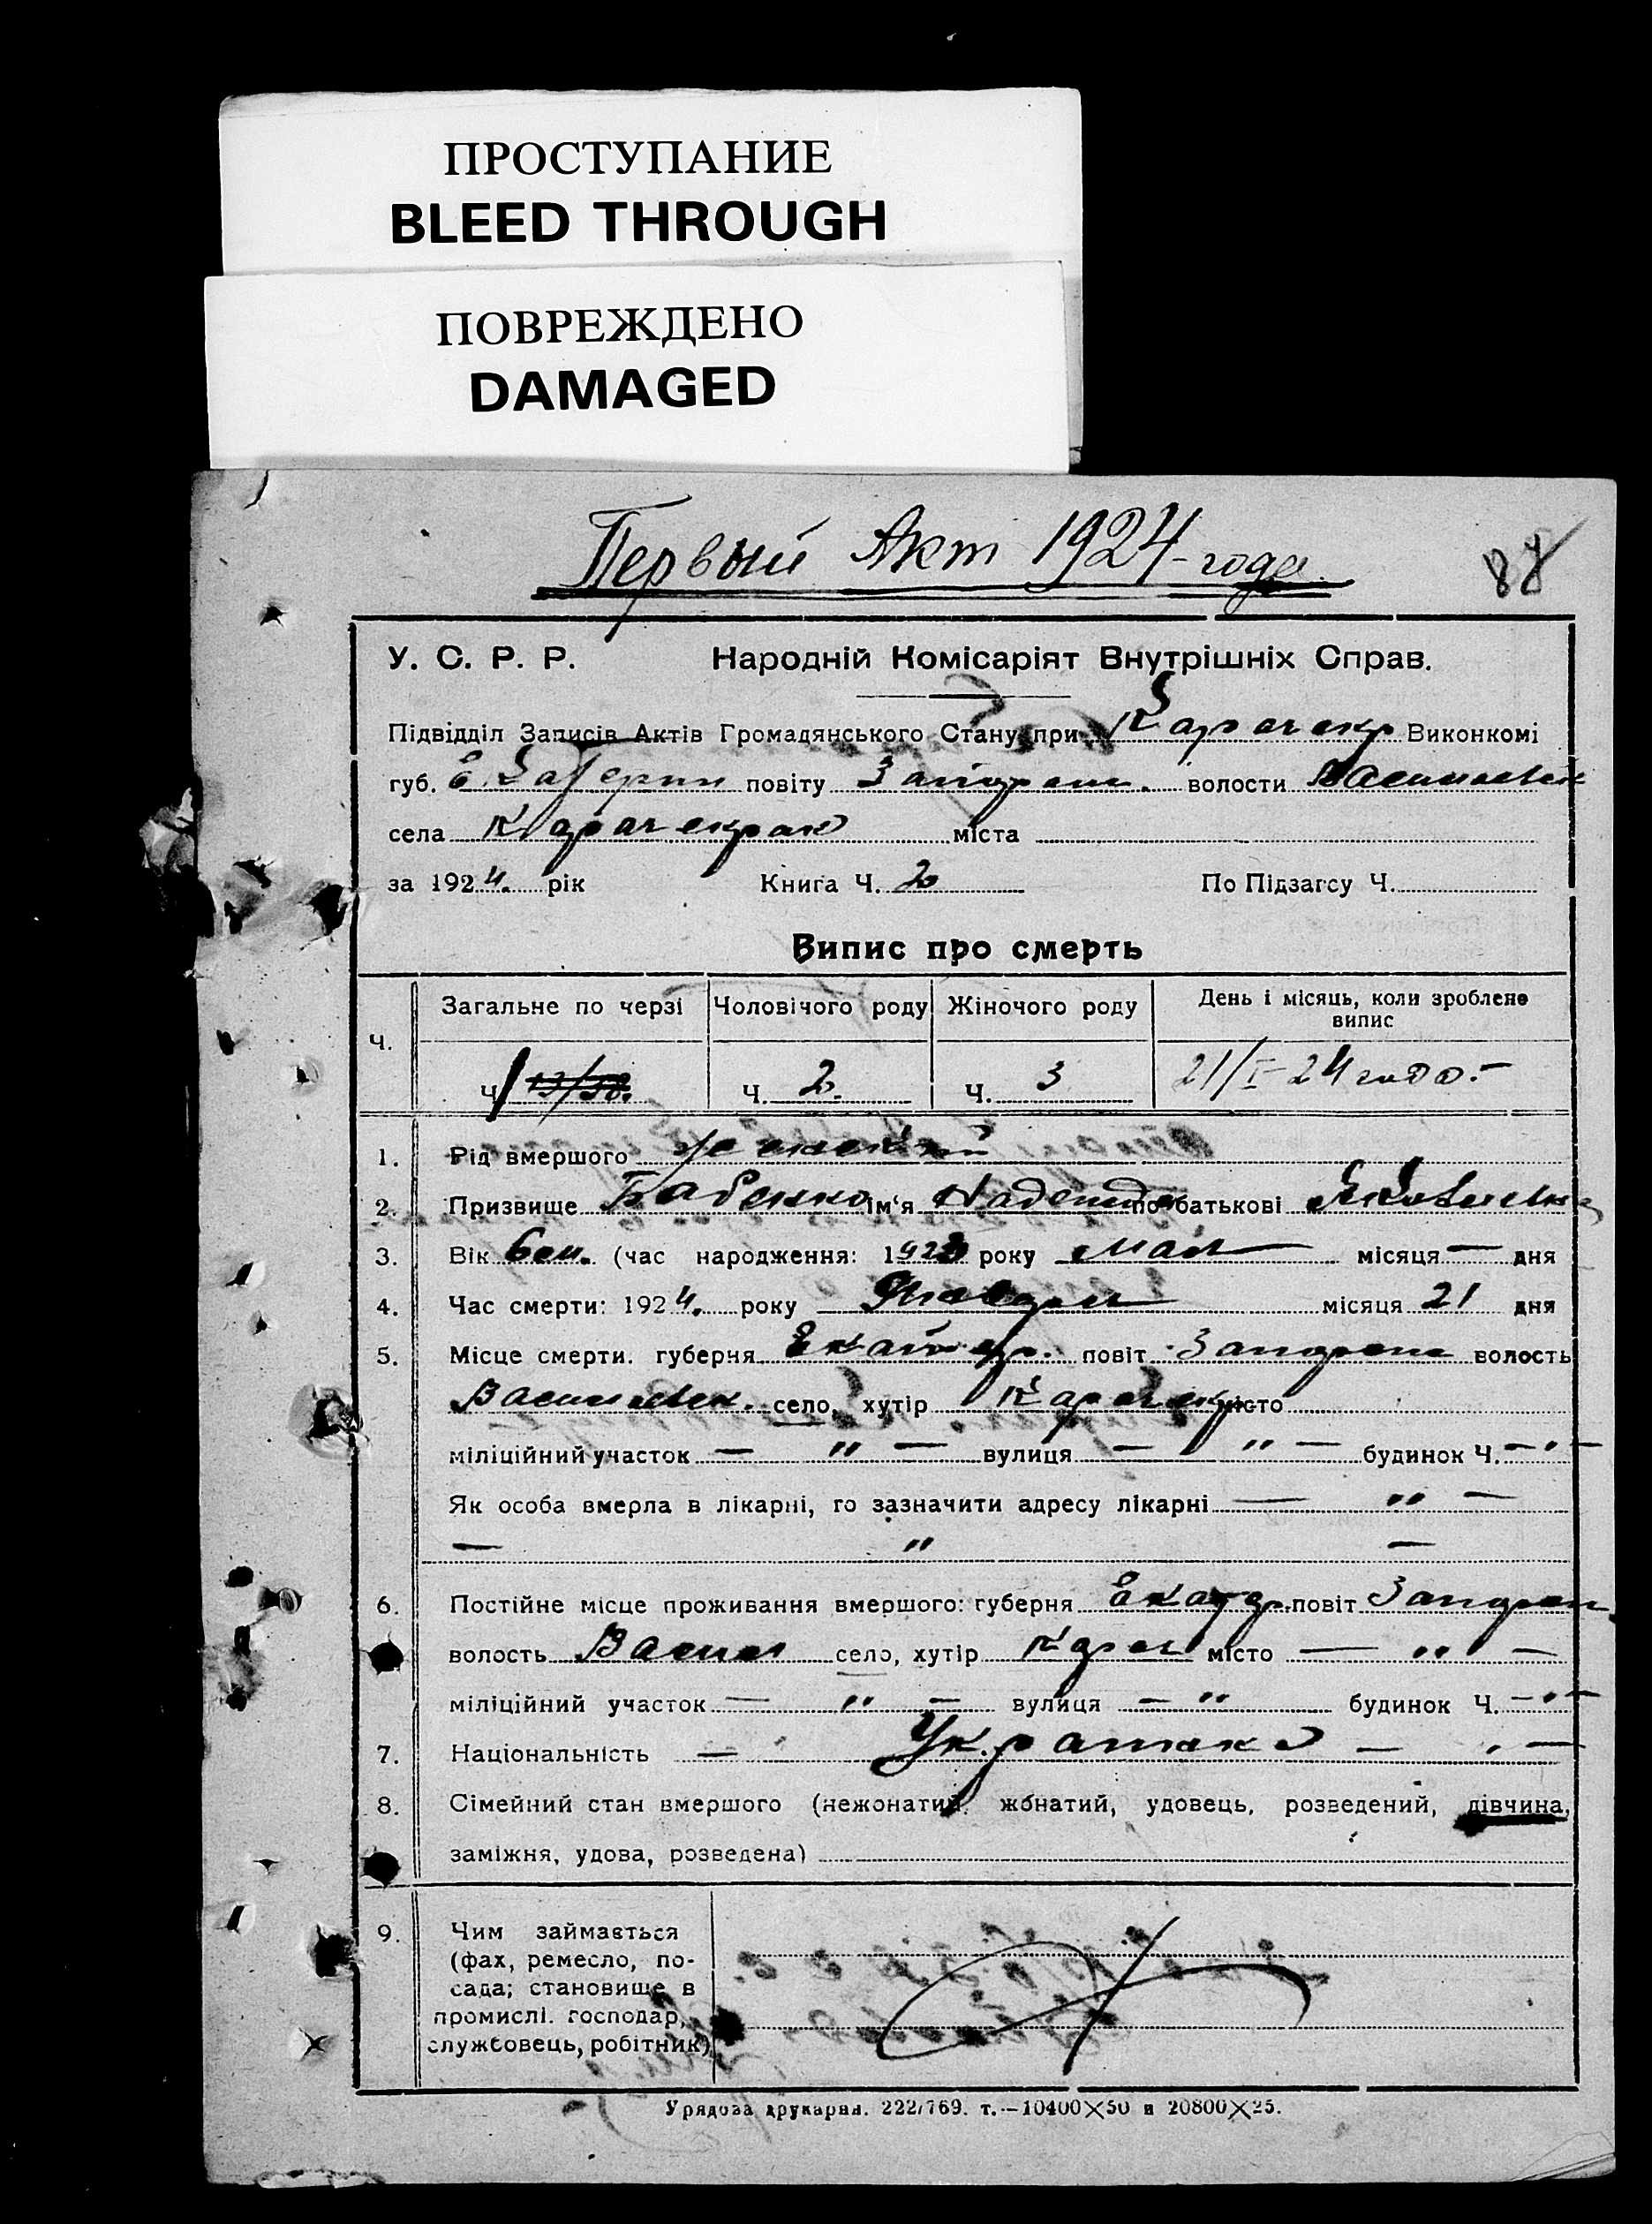 ПРОСТУПАНИЕ
BLEED THROUGH
ПОВРЕЖДЕНО
DAMAGED
Первый Акт 1924-года.
У. С. Р. Р. Народній Комісаріят Внутрішніх Справ.
Підвідділ Записів Актів Громадянського Стану при Карачекр Виконкомі
губ. Екатерин повіту Запорож. волости Васильевск
села Карачекрак міста
за 1924. рік Книга Ч. 2 По Підзагсу Ч.
Випис про смерть
Ч. Загальне по черзі Чоловічого роду Жіночого роду День і місяць, коли зроблене
випис
Ч. 1 Ч. 2. Ч. 3 21/I-24 года.-
1. Рід вмершого женский
2. Призвище Бабенко ім'я Надежда по батькові Яковлевна
3. Вік (час народження: 1923 року мая — місяця — дня
4. Час смерти: 1924. року Января місяця 21 дня
5. Місце смерти. губерня Екатер. повіт Запорож волость
Васильевск. село, хутір Карачекр місто
міліційний участок — " — вулиця — " — будинок Ч. — " —
Як особа вмерла в лікарні, го зазначити адресу лікарні — " —
— " —
6. Постійне місце проживання вмершого: губерня Екатер. повіт Запорож.
волость Васил село, хутір Карач місто — " —
міліційний участок — " — вулиця — " будинок Ч. — " —
7. Національність — Украинка — " —
8. Сімейний стан вмершого (нежонатий, жонатий, удовець, розведений, дівчина,
заміжня, удова, розведена)
9. Чим займається
(фах, ремесло, по-
сада; становище в
промислі. господар,
службовець, робітник)
Урядова друкарня. 222/769. т.—10400×50 и 20800×25.